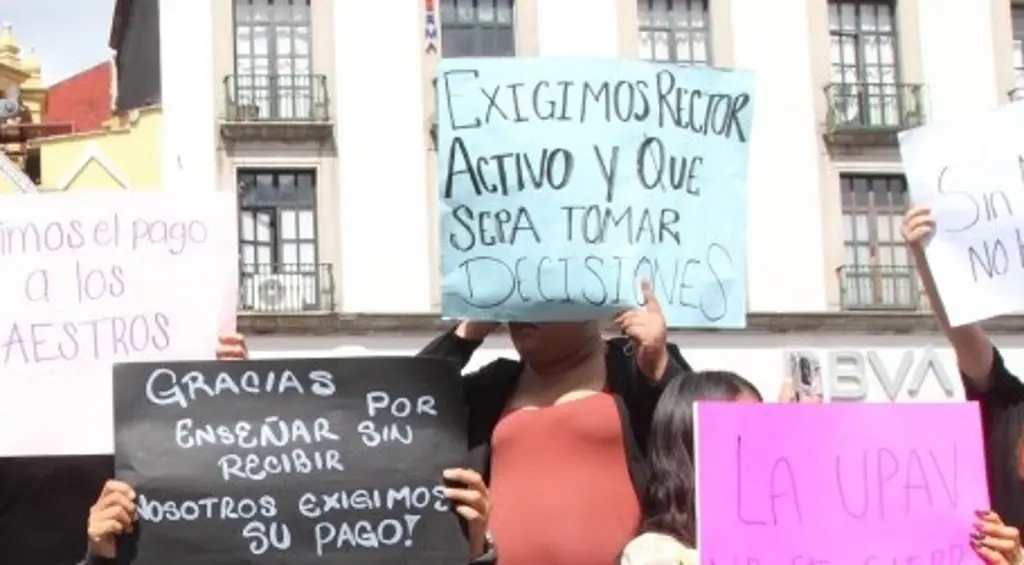 imos el pago
a los
AESTROS
GRACIAS
POR
ENSEÑAR SIN
RECIBIR
NOSOTROS EXIGIMOS
SU PAGO!
EXIGIMOS RECTOR
ACTIVO Y QUE
SEPA TOMAR
DECISIONES
Sin
NO
BBVA
LA UPAV
NO SE